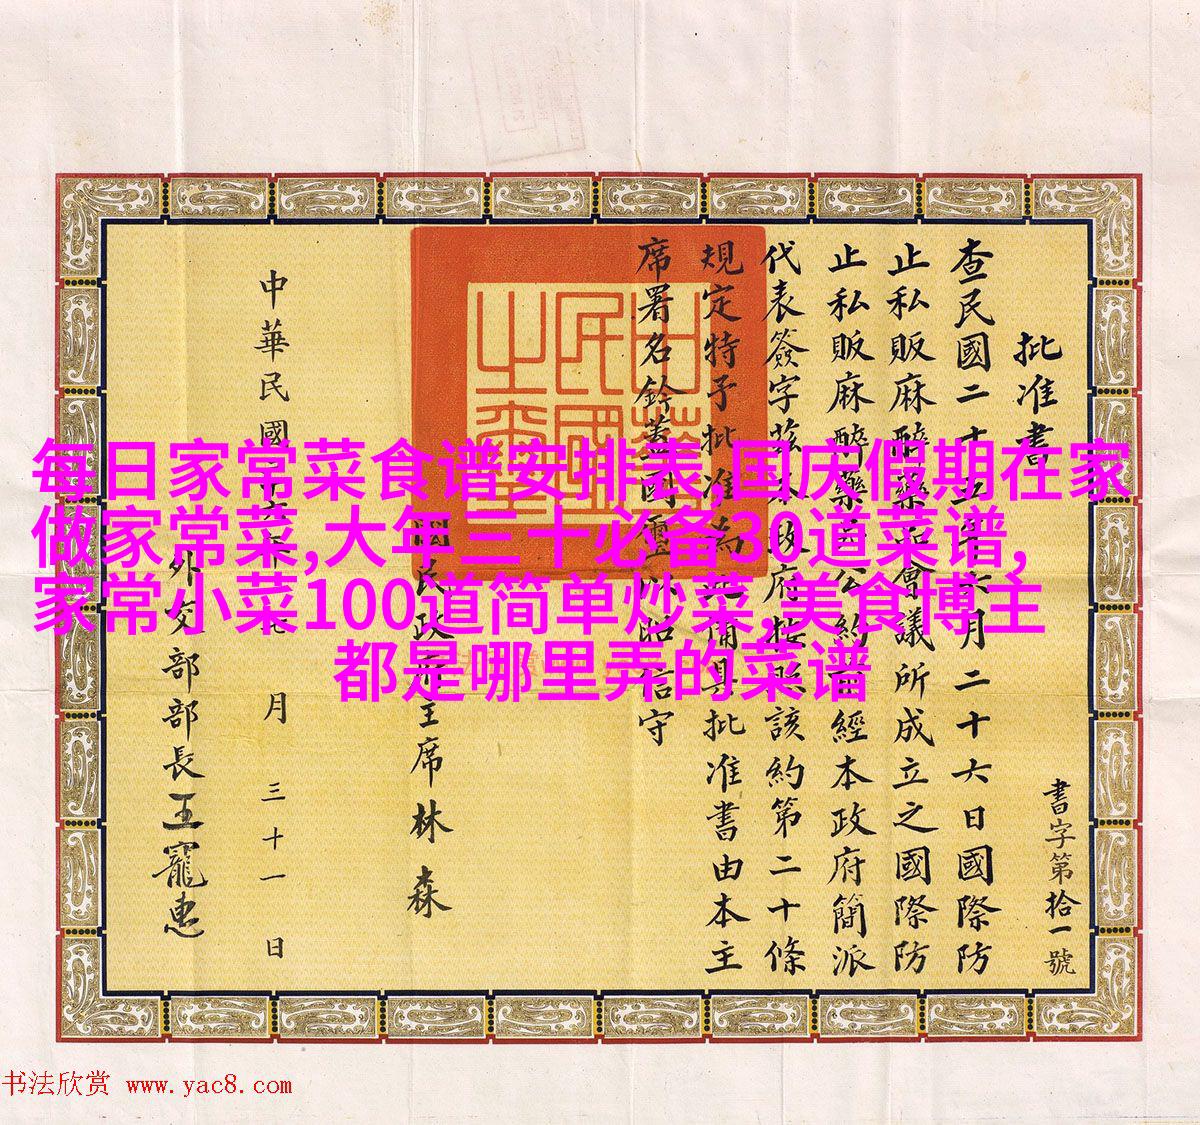 每日家常菜食谱安排表,国庆假期在家
做家常菜,大年三十必备30道菜谱,
家常小菜100道简单炒菜,美食博主
都是哪里弄的菜谱
書字第拾一號
批准書
查民國二十五年六月二十六日國際防
止私販麻醉藥品會議所成立之國際防
止私販麻醉藥品公約前經本政府簡派
代表簽字茲本政府按照該約第二十條
規定特予批准為此備具批准書由本主
席署名鈐蓋國璽以昭信守
中華民國之璽
國民政府主席林森
中華民國六年月三十一日
外交部部長王寵惠
书法欣赏 www.yac8.com